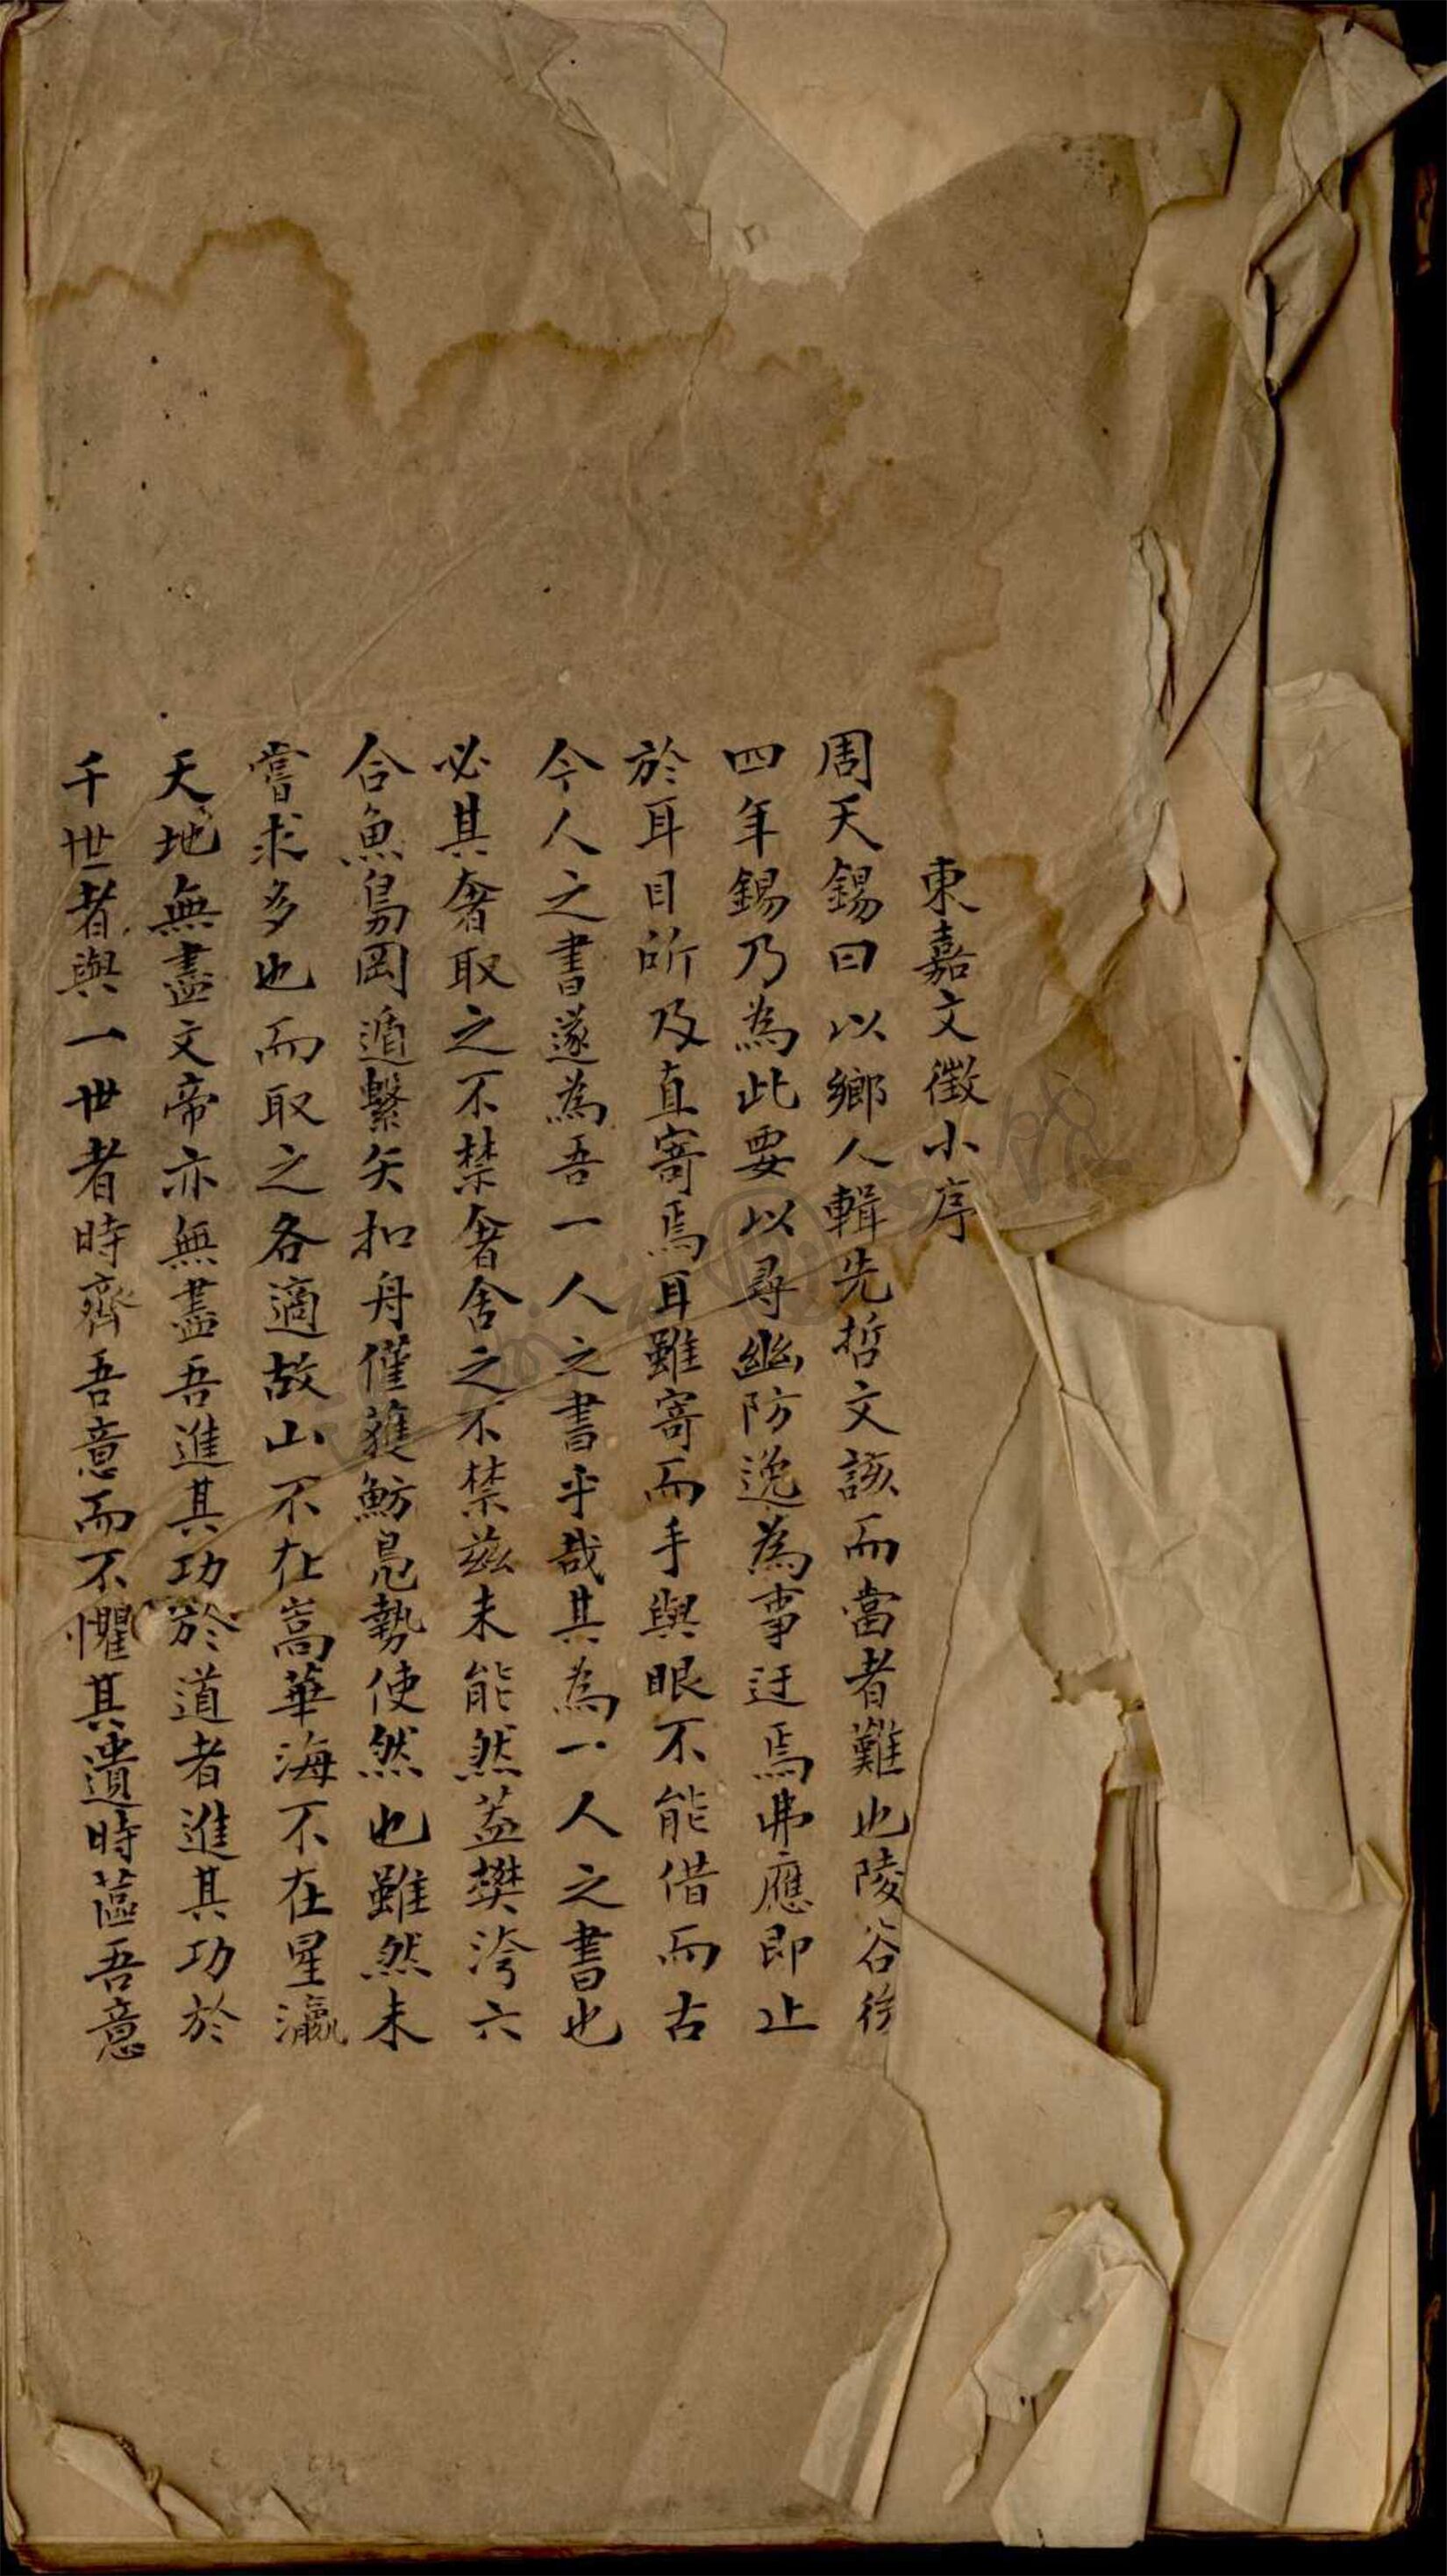 東嘉文徵小序
周天錫曰以鄉人輯先哲文該而當者難也陵谷後
四年錫乃為此要以尋幽防逸為事迂焉弗應即止
於耳目所及直寄焉耳雖寄而手與眼不能借而古
今人之書遂為吾一人之書乎哉其為一人之書也
必其奢取之不禁奢舍之不禁茲未能然蓋樊洿六
合魚鳥罔遁繫矢扣舟僅獲魴鳧勢使然也雖然未
嘗求多也而取之各適故山不在嵩華海不在星瀛
天地無盡文帝亦無盡吾進其功於道者進其功於
千世者與一世者時齊吾意而不懼其遺時蓲吾意